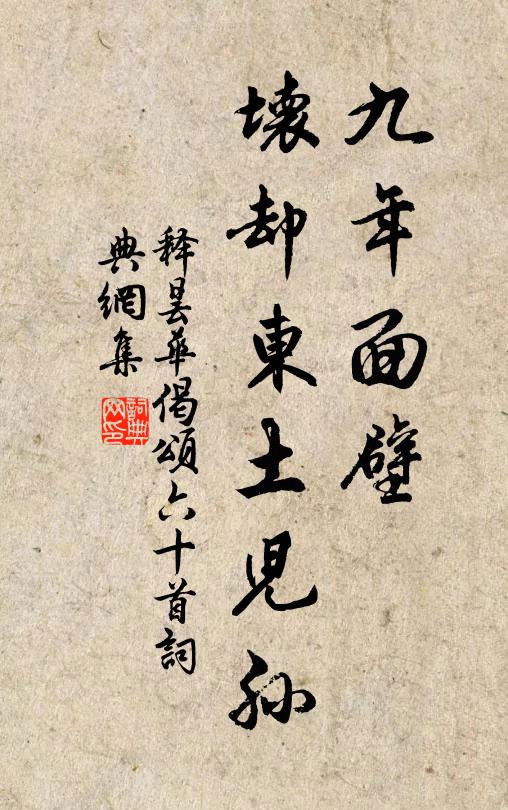 九年面壁
壞却東土兒孫
釋曇華偈頌六十首詞
典網集
詞典
网印